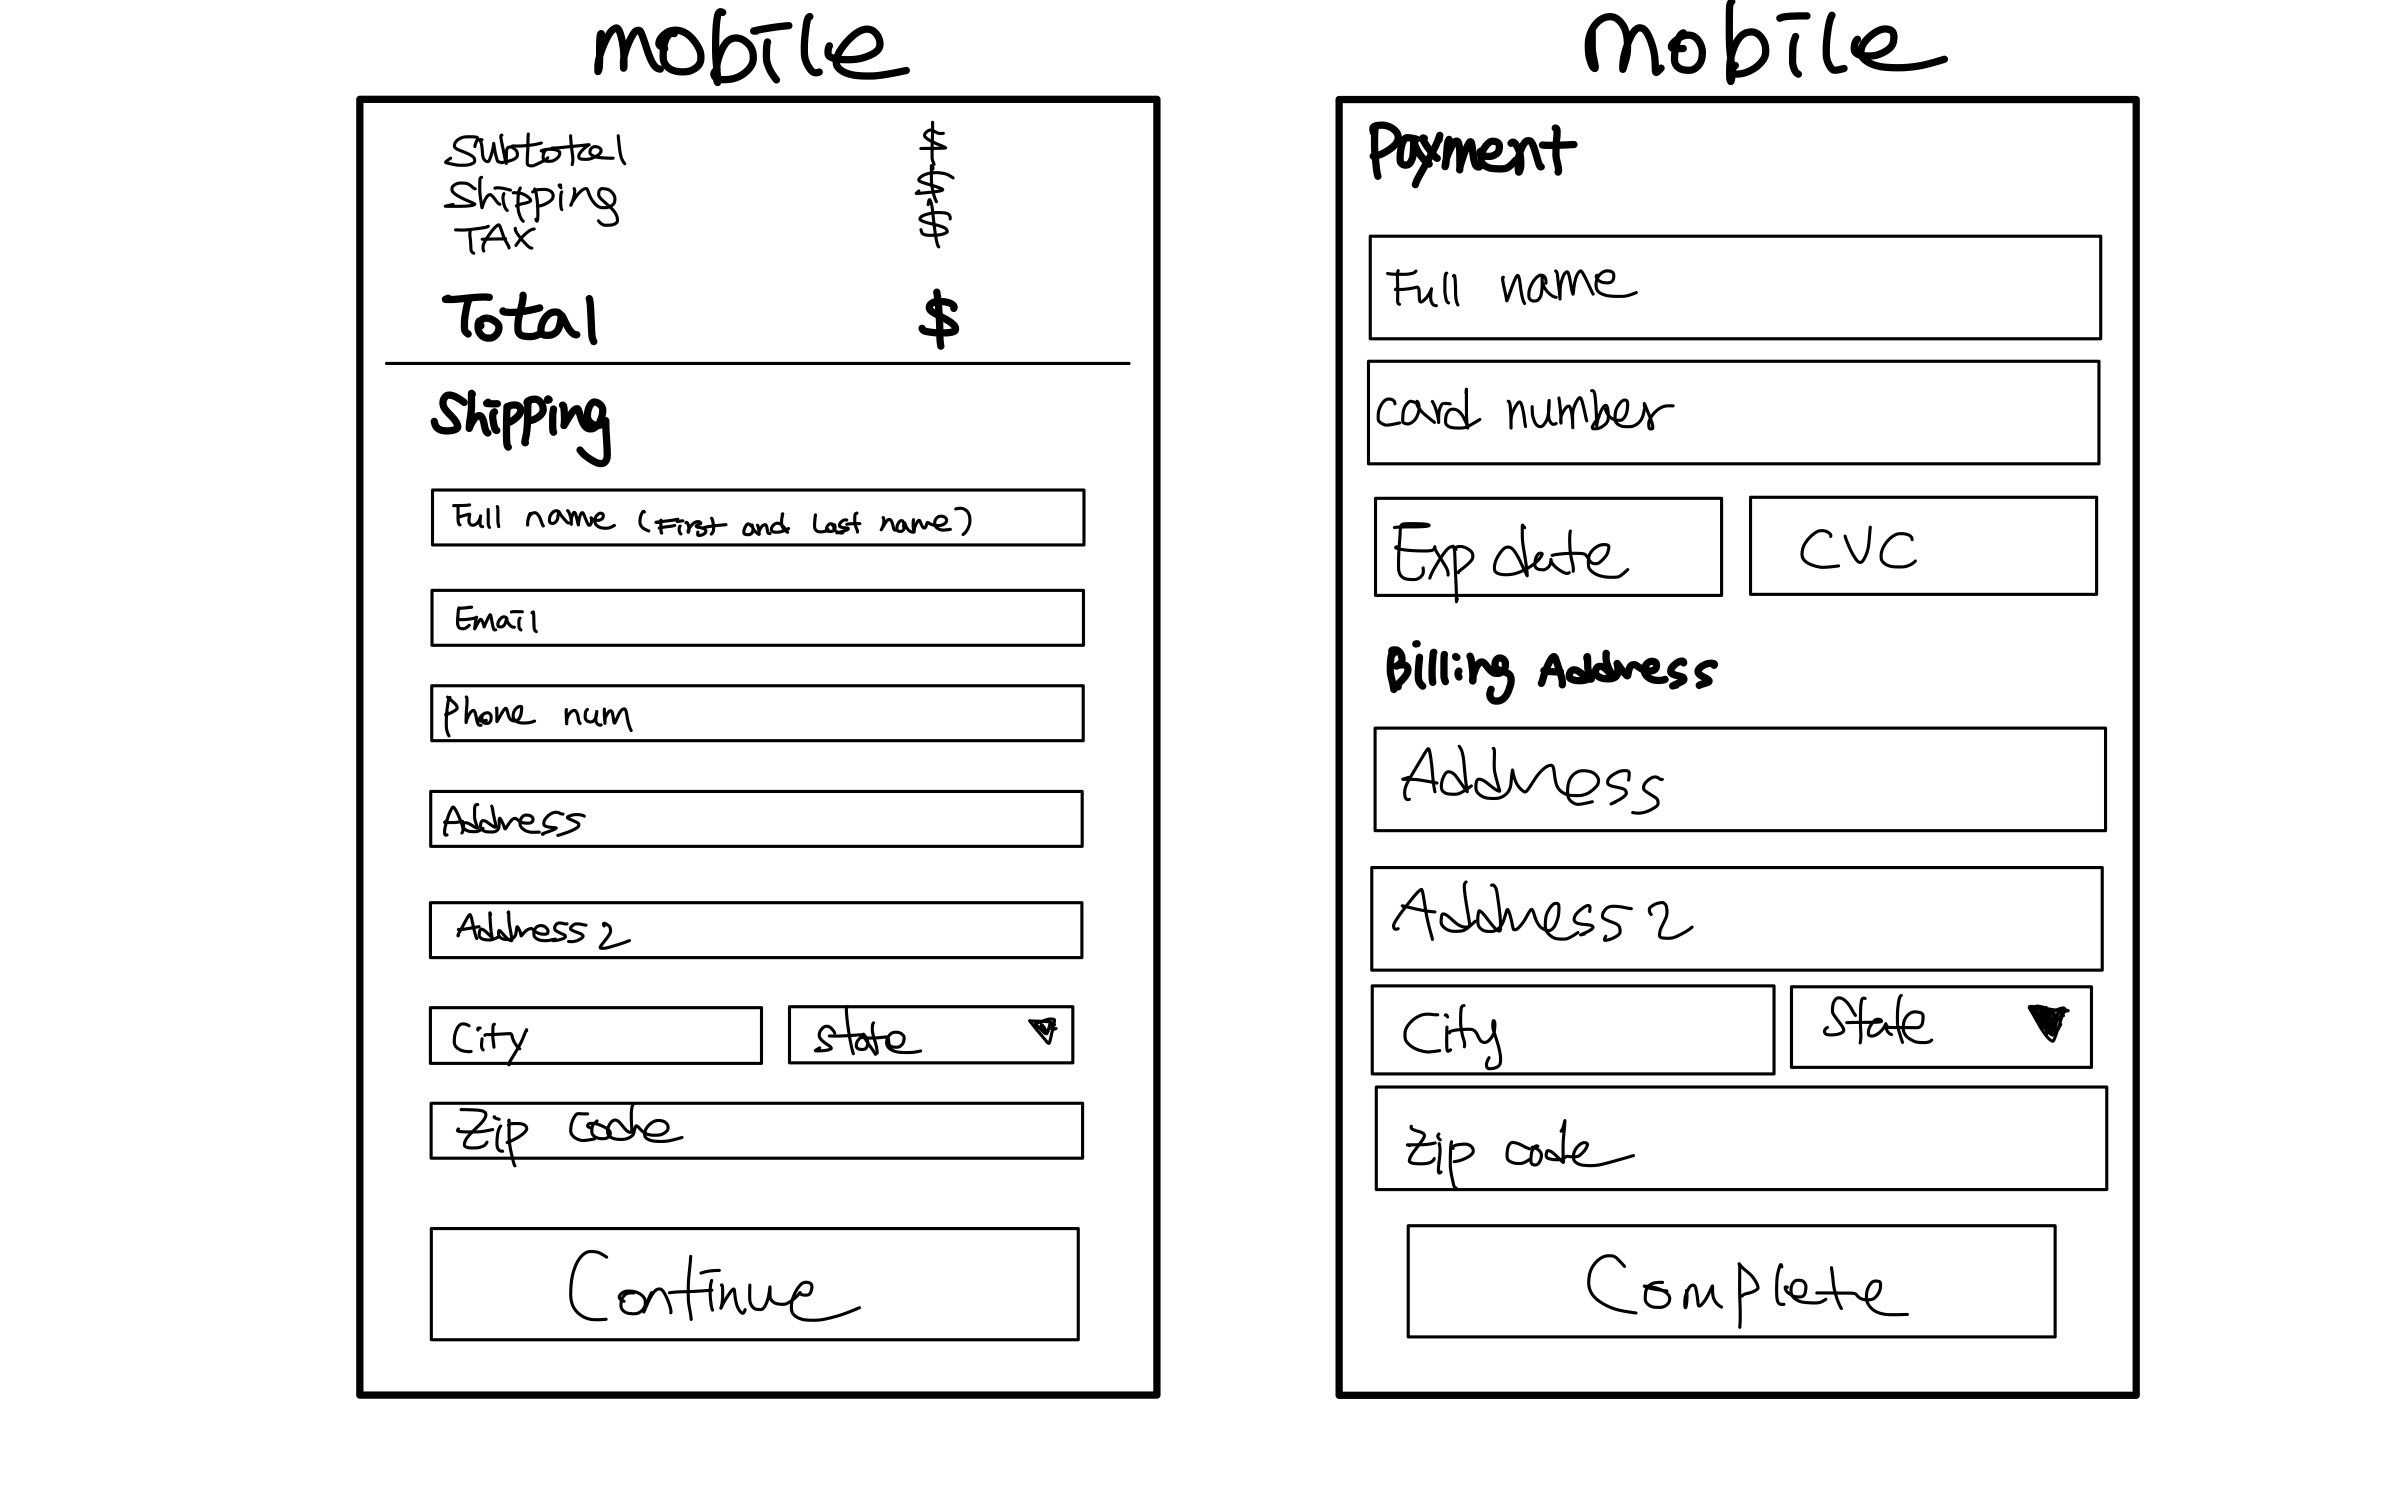 mobile
Subtotal $
Shipping $
TAX $
Total $
Shipping
Full name (First and Last name)
Email
Phone num
Address
Address 2
City state
Zip Code
Continue
mobile
Payment
Full name
card number
Exp date CVC
Billing Address
Address
Address 2
City State
Zip code
Complete